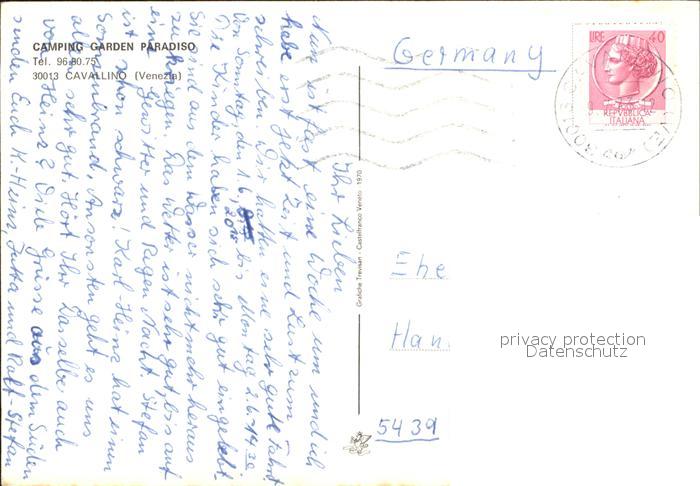 CAMPING GARDEN PARADISO
Tel. 96.80.75
30013 CAVALLINO (Venezia)
Ihr Lieben
Nun ist fast eine Woche um und ich
habe erst jetzt Zeit und Lust zum
schreiben. Wir hatten eine sehr gute Fahrt
Von Sonntag, den 1.6., 20 bis Montag 2.6.
Die Kinder haben sich sehr gut eingelebt.
Sie sind aus dem Wasser nicht mehr heraus
zu kriegen. Das Wetter ist sehr gut, bis auf
eine Gewitter und Regen Nacht. Stefan
ist schon schwarz! Karl-Heinz hat einen
Sonnenbrand. Ansonsten geht es uns
allen sehr gut. Hört Ihr Dasselbe auch
von Heinz? Viele Grüsse aus dem Süden
senden Euch K.-Heinz, Jutta und Ralf-Stefan
Grafiche Trevisan - Castelfranco Veneto 1970
Germany
LIRE 40
REPVBBLICA
ITALIANA
Ehe
Han
5439
privacy protection
Datenschutz